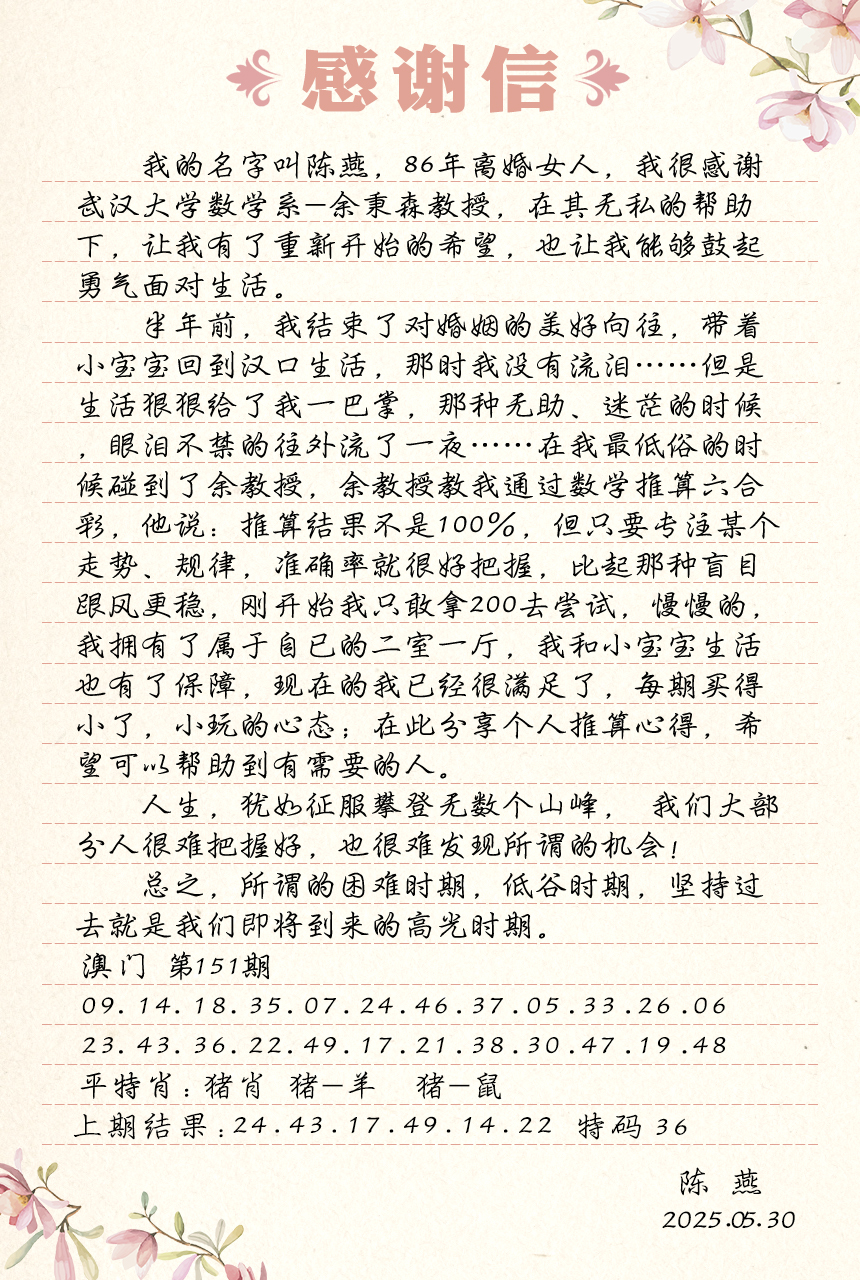 感谢信
我的名字叫陈燕，86年离婚女人，我很感谢
武汉大学数学系—余秉森教授，在其无私的帮助
下，让我有了重新开始的希望，也让我能够鼓起
勇气面对生活。
半年前，我结束了对婚姻的美好向往，带着
小宝宝回到汉口生活，那时我没有流泪……但是
生活狠狠给了我一巴掌，那种无助、迷茫的时候
，眼泪不禁的往外流了一夜……在我最低俗的时
候碰到了余教授，余教授教我通过数学推算六合
彩，他说：推算结果不是100%，但只要专注某个
走势、规律，准确率就很好把握，比起那种盲目
跟风更稳，刚开始我只敢拿200去尝试，慢慢的，
我拥有了属于自已的二室一厅，我和小宝宝生活
也有了保障，现在的我已经很满足了，每期买得
小了，小玩的心态；在此分享个人推算心得，希
望可以帮助到有需要的人。
人生，犹如征服攀登无数个山峰， 我们大部
分人很难把握好，也很难发现所谓的机会！
总之，所谓的困难时期，低谷时期，坚持过
去就是我们即将到来的高光时期。
澳门 第151期
09.14.18.35.07.24.46.37.05.33.26.06
23.43.36.22.49.17.21.38.30.47.19.48
平特肖：猪肖 猪—羊 猪—鼠
上期结果：24.43.17.49.14.22 特码 36
陈 燕
2025.05.30